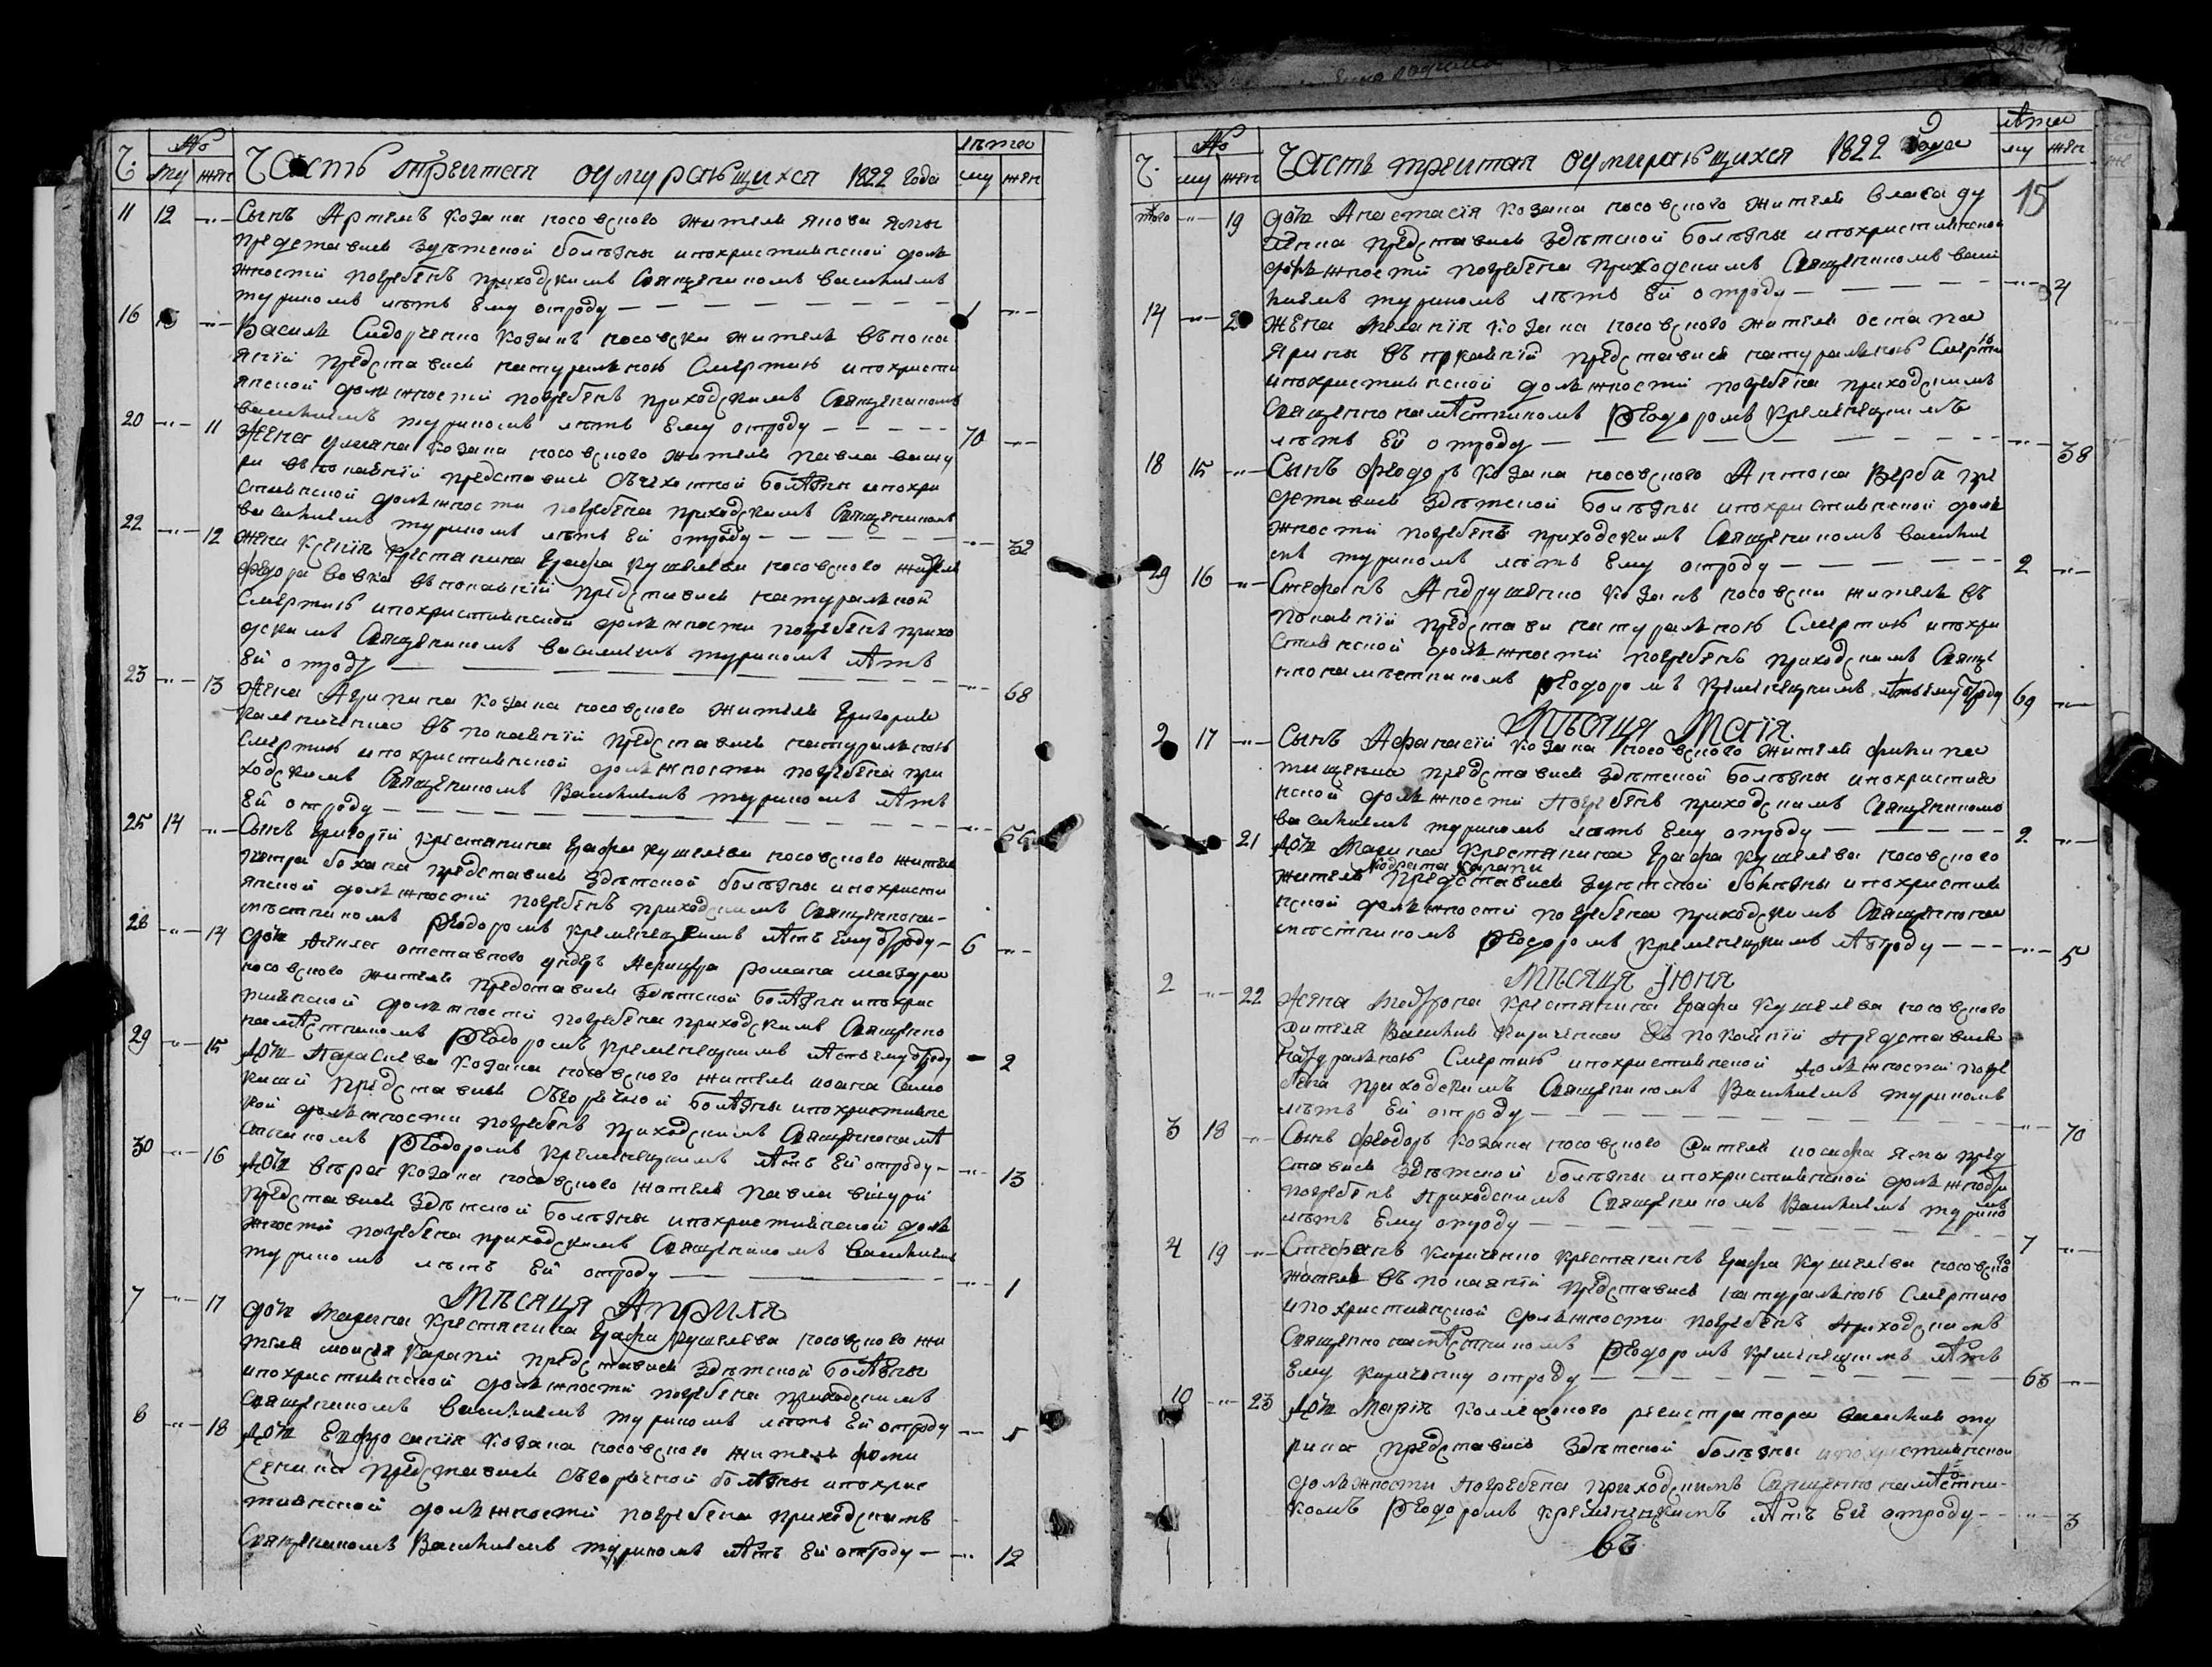 Ч. № му жен Часть третая оумиравщихся 1822 года лета му жен
11 12 Сынъ Артемъ козака носовского жителя Янова Ялы
представися здѣтской болѣзны и по християнской долж
жностй погребенъ приходскимъ Священикомъ василиемъ
туриномъ лѣтъ ему отроду 1
16 Василь Сидорченко козакъ носовски житель въ пока
янїй представися натуралною Смертию и по христи
янской должностй погребенъ приходскимъ Священикомъ
василиемъ туриномъ лѣтъ ему отроду 70
20 11 Жена улияна козака носовского жителя павла вищу
ри въ покаянїй представися Съчехотной болѣзни и по хри
стиянской должности погребена приходскимъ Священикомъ
василиемъ туриномъ лѣтъ ей отроду 32
22 12 жена Ксения крестянина Графа Кушелева носовского жителя
федора вовка въ покаянїй представися натуралной
Смертию и по християнской должности погребенъ прихо
дскимъ Священикомъ василиемъ туриномъ лѣтъ
ей отроду 68
23 13 Жена Агрипина козака носовского жителя Григория
въ покаянїй представися натуралною
Смертию и по християнской должности погребена при
ходскимъ Священикомъ Василиемъ туриномъ лѣтъ
ей отроду
25 14 Сынъ Григорїй крестянина Графа кушелева носовского жителя
петра бохана представися здѣтской болѣзны и по христи
янской должностй погребенъ приходскимъ Священнона-
мѣстникомъ Феодоромъ кременецкимъ лѣтъ ему отроду 6
28 14 дочь отставного ундеръ Афицера романа мазура
носовского жителя представися здѣтской болѣзни и по хрис
тиянской должностй погребена приходскимъ Священно
намѣстникомъ Феодоромъ Кременецкимъ лѣтъ ему отроду 2
29 15 Дочь Параскева козака носовского жителя иоана Само
представися Съгорѣчкой болѣзны и по християнс
кой должности погребенъ приходскимъ Священнонамѣ
стникомъ Феодоромъ кременецкимъ лѣтъ ей отроду 13
30 16 Дочь вѣра козака носовского жителя павла вищури
представися здѣтской болѣзны и по християнской долж
жностй погребена приходскимъ Священикомъ василиемъ
туриномъ лѣтъ ей отроду 1
Мѣсяца Априля
7 17 дочь Марина крестянина Графа кушелева носовского жи
теля моисея Карапи представися здѣтской болѣзны
и по християнской должностй погребена приходскимъ
священикомъ василиемъ туриномъ лѣтъ ей отроду
8 18 Дочь Евфросиния козака носовского жителя фоми
Сенина представися Съгорѣчкой болѣзны и по хрис
тиянской должностй погребена приходскимъ
Священикомъ Василиемъ туриномъ лѣтъ ей отроду 12
Ч. № му жен Часть третая оумиравщихся 1822 Года лѣта му жен
15
того 19 дочь Анастасїя козака носовского жителя власа ду
представися здѣтской болѣзны и по християнской
должностй погребена приходскимъ Священикомъ васи
лиемъ туриномъ лѣтъ ей отроду 4
14 жена Меланїя козака носовского жителя остапа
Ярины въ покаянїй представися натуралною Смертию
и по християнской должностй погребена приходскимъ
Священнонамѣстникомъ Феодоромъ кременецкимъ
лѣтъ ей отроду 38
18 15 Сынъ Феодоръ козака носовского Антона Верба пре
дставися здѣтской болѣзны и по християнской долж
жностй погребенъ приходскимъ Священикомъ василие
мъ туриномъ лѣтъ ему отроду 2
29 16 Стефанъ Андрущенко козакъ носовски житель въ
покаянїй представи натуралною Смертию и по хри
стиянской должностй погребенъ приходскимъ Священ
нонамѣстникомъ Феодоромъ Кременецкимъ лѣтъ ему отроду 69
Мѣсяца Маїя
2 17 Сынъ Афанасїй козака носовского жителя филипа
тищенка представися здѣтской болѣзны и по христия
нской должностй погребенъ приходскимъ Священикомъ
василиемъ туриномъ лѣтъ ему отроду 2
21 Дочь Марина крестянина Графа кушелева носовского
жителя Кодрата Карапи представися здѣтской болѣзны и по христия
нской должностй погребена приходскимъ Священнона
мѣстникомъ Феодоромъ кременецкимъ лѣ отроду 5
Мѣсяца Їюня
2 22 Жена Матрона крестянина Графа кушелева носовского
жителя Василия Кириченка въ покаянїй представися
натуралною Смертию и по християнской должностй погре
бена приходскимъ Священикомъ Василиемъ туриномъ
лѣтъ ей отроду 70
3 18 Сынъ Феодоръ козака носовского жителя иосифа яма пред
ставися здѣтской болѣзны и по християнской должностй
погребенъ приходскимъ Священикомъ Василиемъ туриномъ
лѣтъ ему отроду 7
4 19 Стефанъ Кириченко крестянинъ Графа Кушелева носовского
житель въ покаянїй представися натуралною Смертию
и по християнской должности погребенъ приходскимъ
Священнонамѣстникомъ Феодоромъ кременецкимъ лѣтъ
Ему Кириченку отроду 63
10 23 Дочь Марїя коллежского регистратора василия ту
рина представися здѣтской болѣзны и по християнской
должности погребена приходскимъ Священнонамѣстни-
комъ Феодоромъ кременецкимъ лѣтъ ей отроду 3